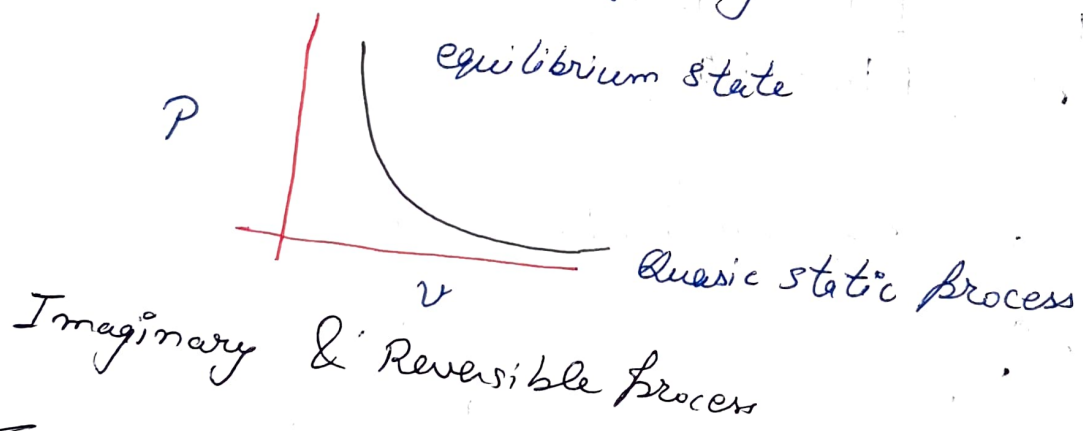 equilibrium state
P
Quasic static process
v
Imaginary & Reversible process